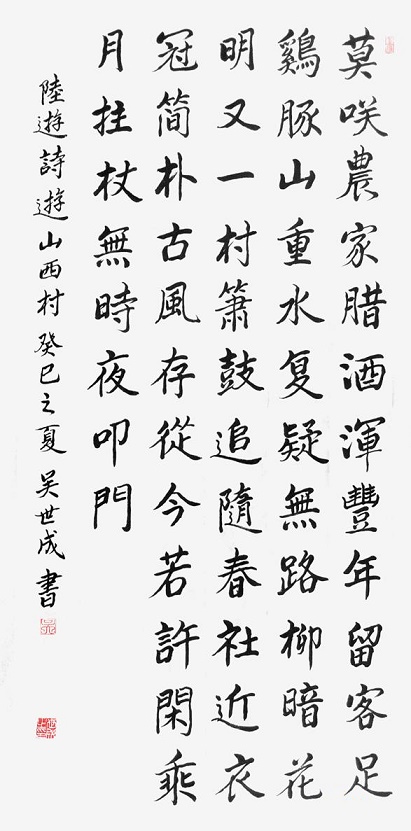 莫咲農家腊酒渾豐年留客足
鷄豚山重水复疑無路柳暗花
明又一村簫鼓追隨春社近衣
冠简朴古風存從今若許閑乘
月拄杖無時夜叩門
陸游詩遊山西村癸巳之夏吴世成書